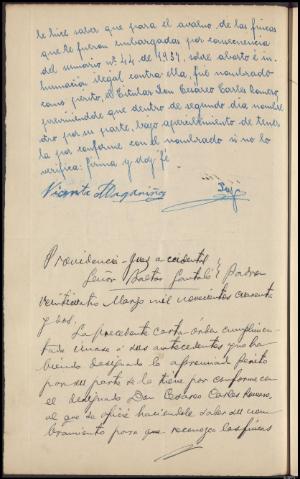 le hice saber que para el avaluo de las fincas
que le fueron embargadas por consecuencia
del sumario nº 44 de 1937, sobre aborto é in-
humación ilegal contra ella, fué nombrado
como perito, el titular Don Cesareo Carlos Romero,
previniendole que dentro de segundo dia nombre
otro por su parte, bajo apercibimiento de tener
la por conforme con el nombrado si no lo
verifica: firma y doy fé
Vicenta Magariños
Providencia - Juez accidental
Señor Bastos Santaló Padron
veinticuatro Marzo mil novecientos cuarenta
y dos.
La precedente carta-órden cumplimen-
tada unase á sus antecedentes y no ha
biendo designado la apremiada perito
por su parte se la tiene por conforme con
el designado Don Cesareo Carlos Romero,
al que se oficie haciendole saber su nom
bramiento para que reconozca las fincas